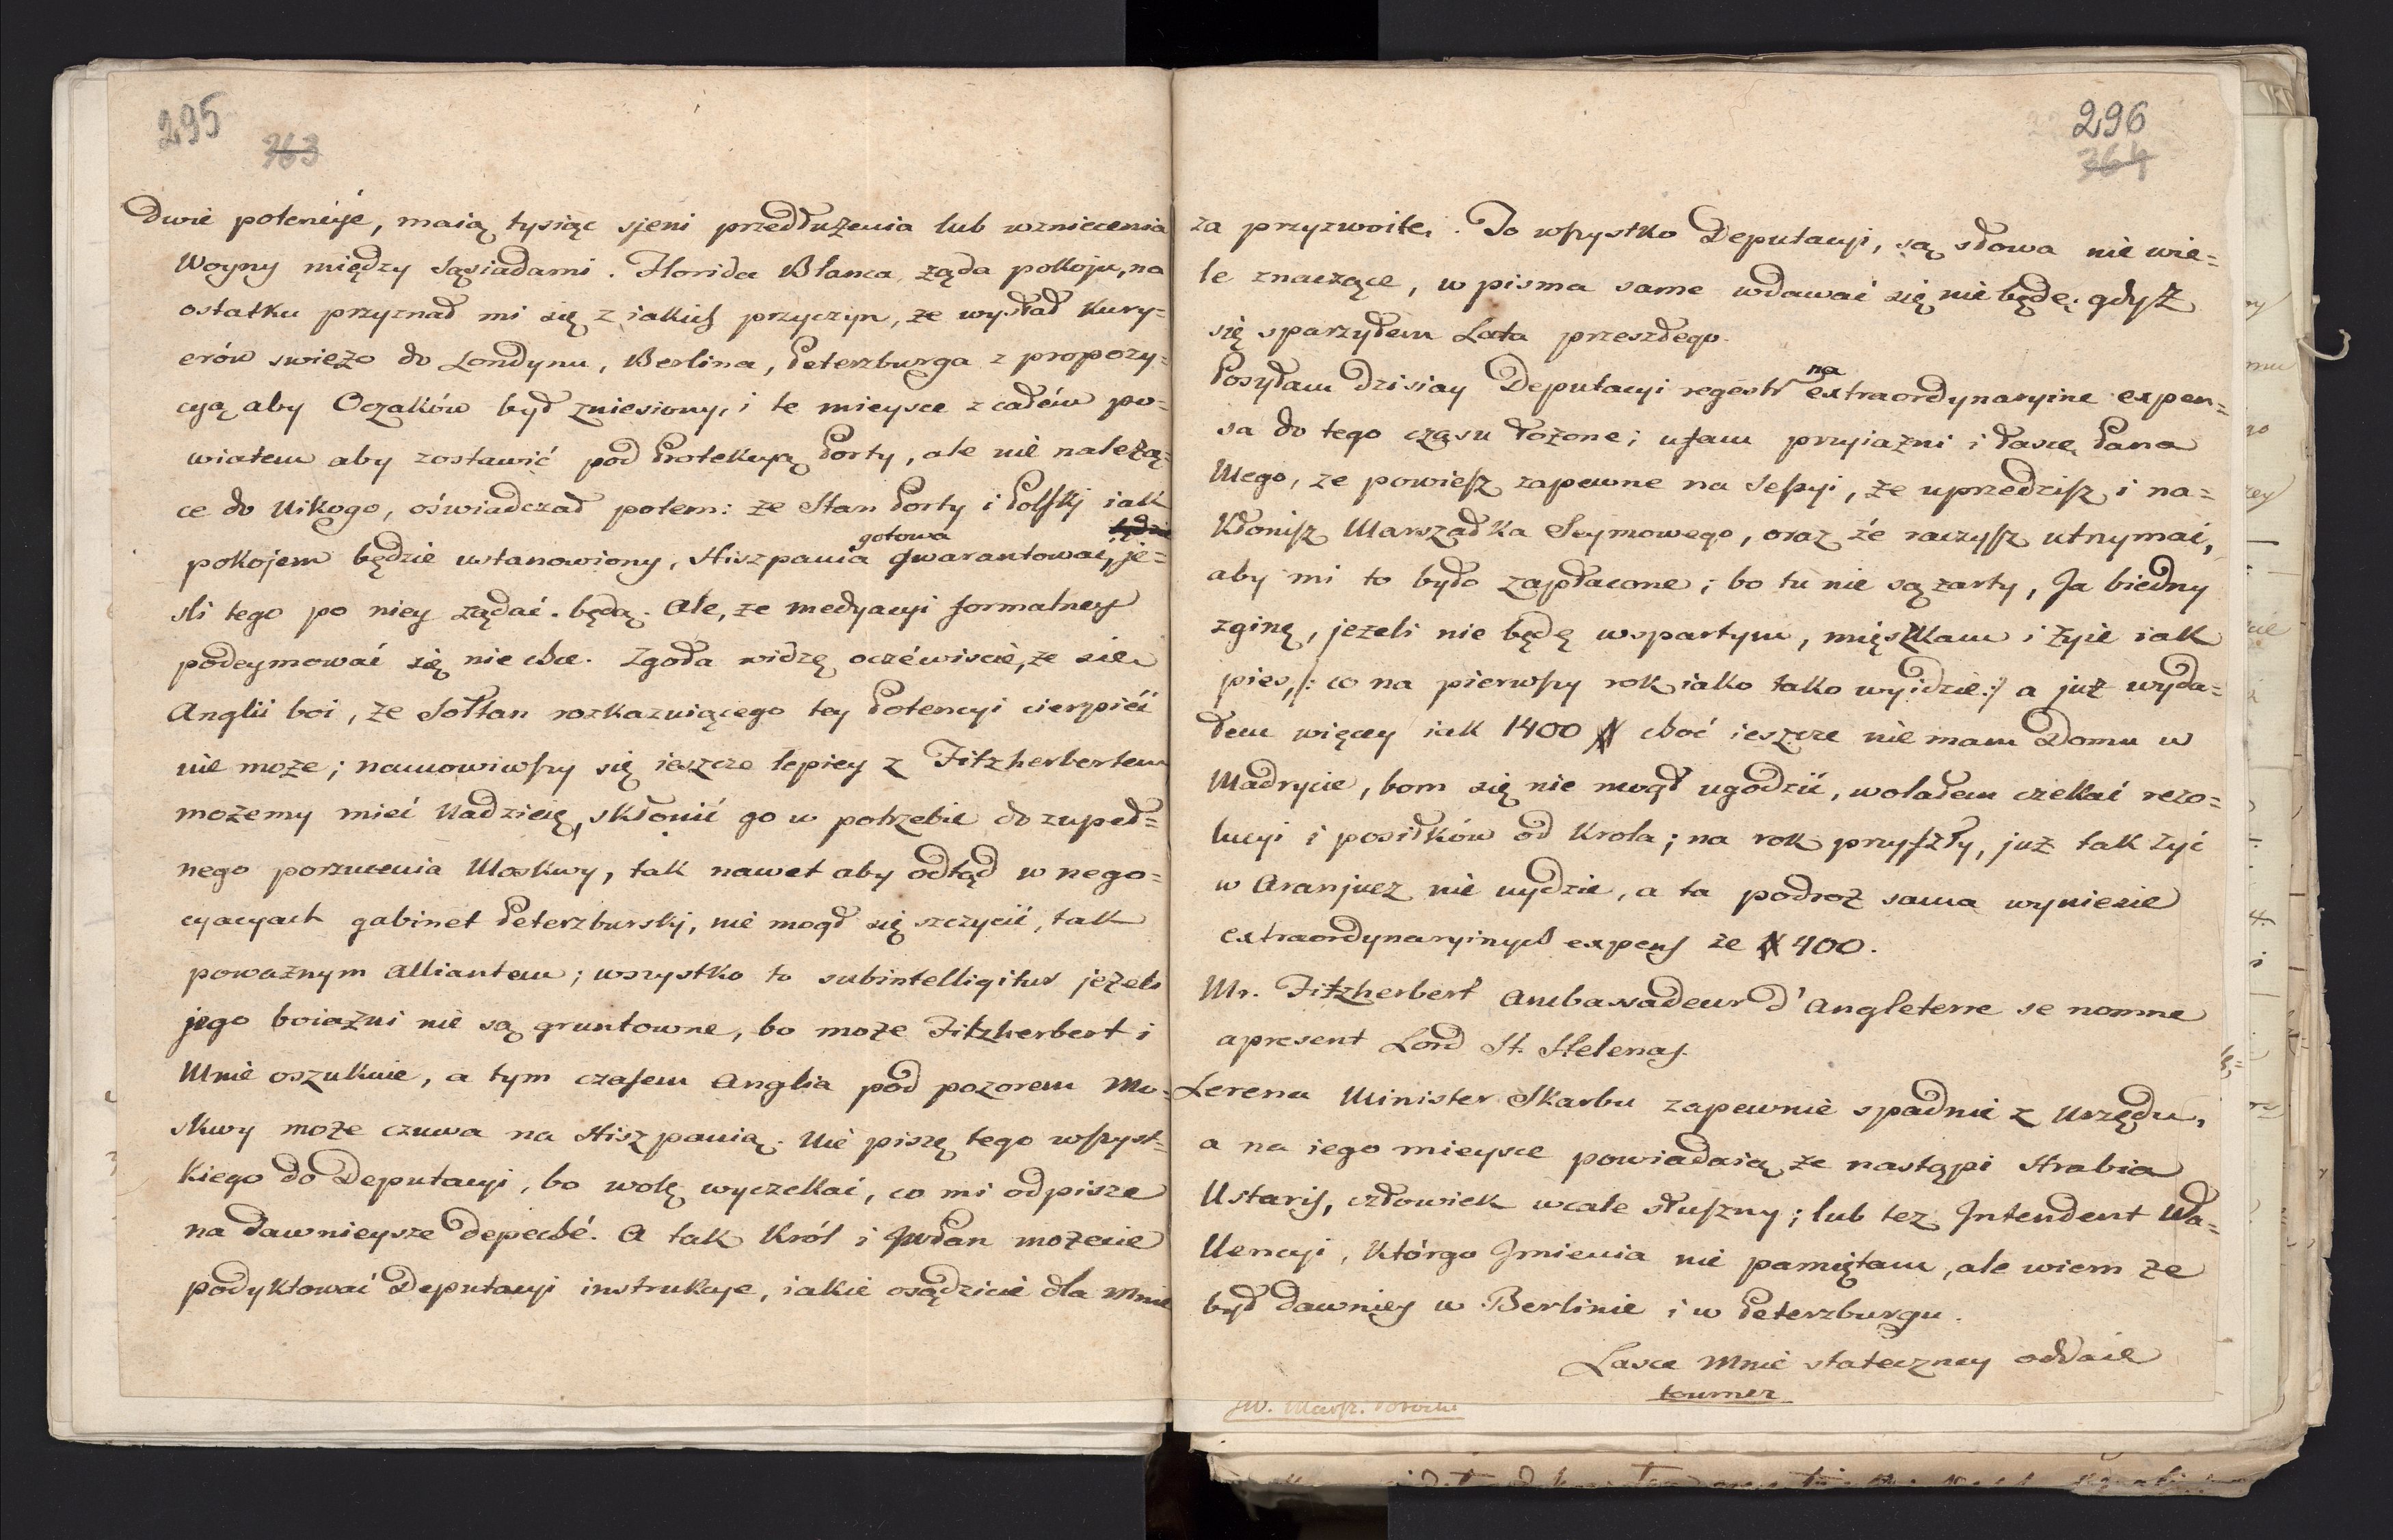 295
363
Dwie potencije, maią tysiąc sjeni przedłużenia lub wzniecenia
Woyny między Sąsiadami. Florida Blanca żąda pokoju, na
ostatku przyznał mi się z iakich przyczyn, że wysłał Kury=
erów swieżo do Londynu, Berlina, Peterzburga z propozy=
cyą aby Oczaków był zniesiony, i te mieysce z całém po=
wiatem aby zostawić pod Protekcyą Porty, ale nie należą=
ce do Nikogo, oświadczał potem: że Stan Porty i Polskj iak
gotowa
pokojem będzie ustanowiony, Hiszpania gwarantować, je=
sli tego po niey żądać będą. Ale, że medyacyi formalney
podeymować się nie chce. Zgoła widzę oczéwiscie, że się
Anglii boi, że Sołtan rozkazuiącego tey Potencyi cierpiéć
nie może; namowiwszy się ieszcze lepiey z Fitzherbertem
możemy mieć Nadzieię, skłonić go w potrzebie do zupeł=
nego porzucenia Moskwy, tak nawet aby odtąd w nego=
cyacyach gabinet Peterzburskj, nie mógł się szczycić, tak
poważnym Alliantem; wszystko to subintelligitur jeżeli
jego boiaźni nie są gruntowne, bo może Fitzherbert i
Mnie oszukuie, a tym czasem Anglia pod pozorem Mo=
skwy może czuwa na Hiszpanią. Nie piszę tego wszyst=
kiego do Deputacyi, bo wolę wyczekać, co mi odpisze
na dawnieysze depeché. A tak Król i JwPan możecie
podyktować Deputacyi instrukcye, iakie osądzicie dla Mnie
296
364
za przyzwoite. To wszystko Deputacyi, są słowa nie wie=
le znaczące, w pisma same wdawać się nie będę, gdyż
się sparzyłem Lata przeszłego.
na
Posyłam dzisiay Deputacyi regestr extraordynaryine expen=
sa do tego czasu łożone; ufam przyiaźni i łasce Pana
Mego, że powiesz zapewne na Sessyi, że uprzedzisz i na=
kłonisz Marszałka Seymowego, oraz że raczysz utrzymać,
aby mi to było zapłacone; bo tu nie są żarty, Ja biedny
zginę, jeżeli nie będę wspartym, mięszkam i żyie iak
pies, /: co na pierwszy rok iako tako wyidzie :/ a już wyda=
łem więcey iak 1400 # choć ieszcze nie mam Domu w
Madrycie, bom się nie mógł ugodzić, wolałem czekać rezo=
lucyi i posiłków od Krola; na rok przyszły, już tak żyć
w Aranjuez nie uydzie, a ta podroż sama wyniesie
extraordynaryinych expens że # 400.
Mr. Fitzherbert Ambassadeur d'Angleterre se nomne
apresent Lord St. Helenas.
Lerena Minister Skarbu zapewnie spadnie z Urzędu,
a na iego mieysce powiadaią że nastąpi Hrabia
Ustaris, człowiek wcale słuszny; lub też Intendent Wa=
lencyi, którgo Jmienia nie pamiętam, ale wiem że
był dawniey w Berlinie i w Peterzburgu.
Lasce Mnie stateczney oddaie
tourner